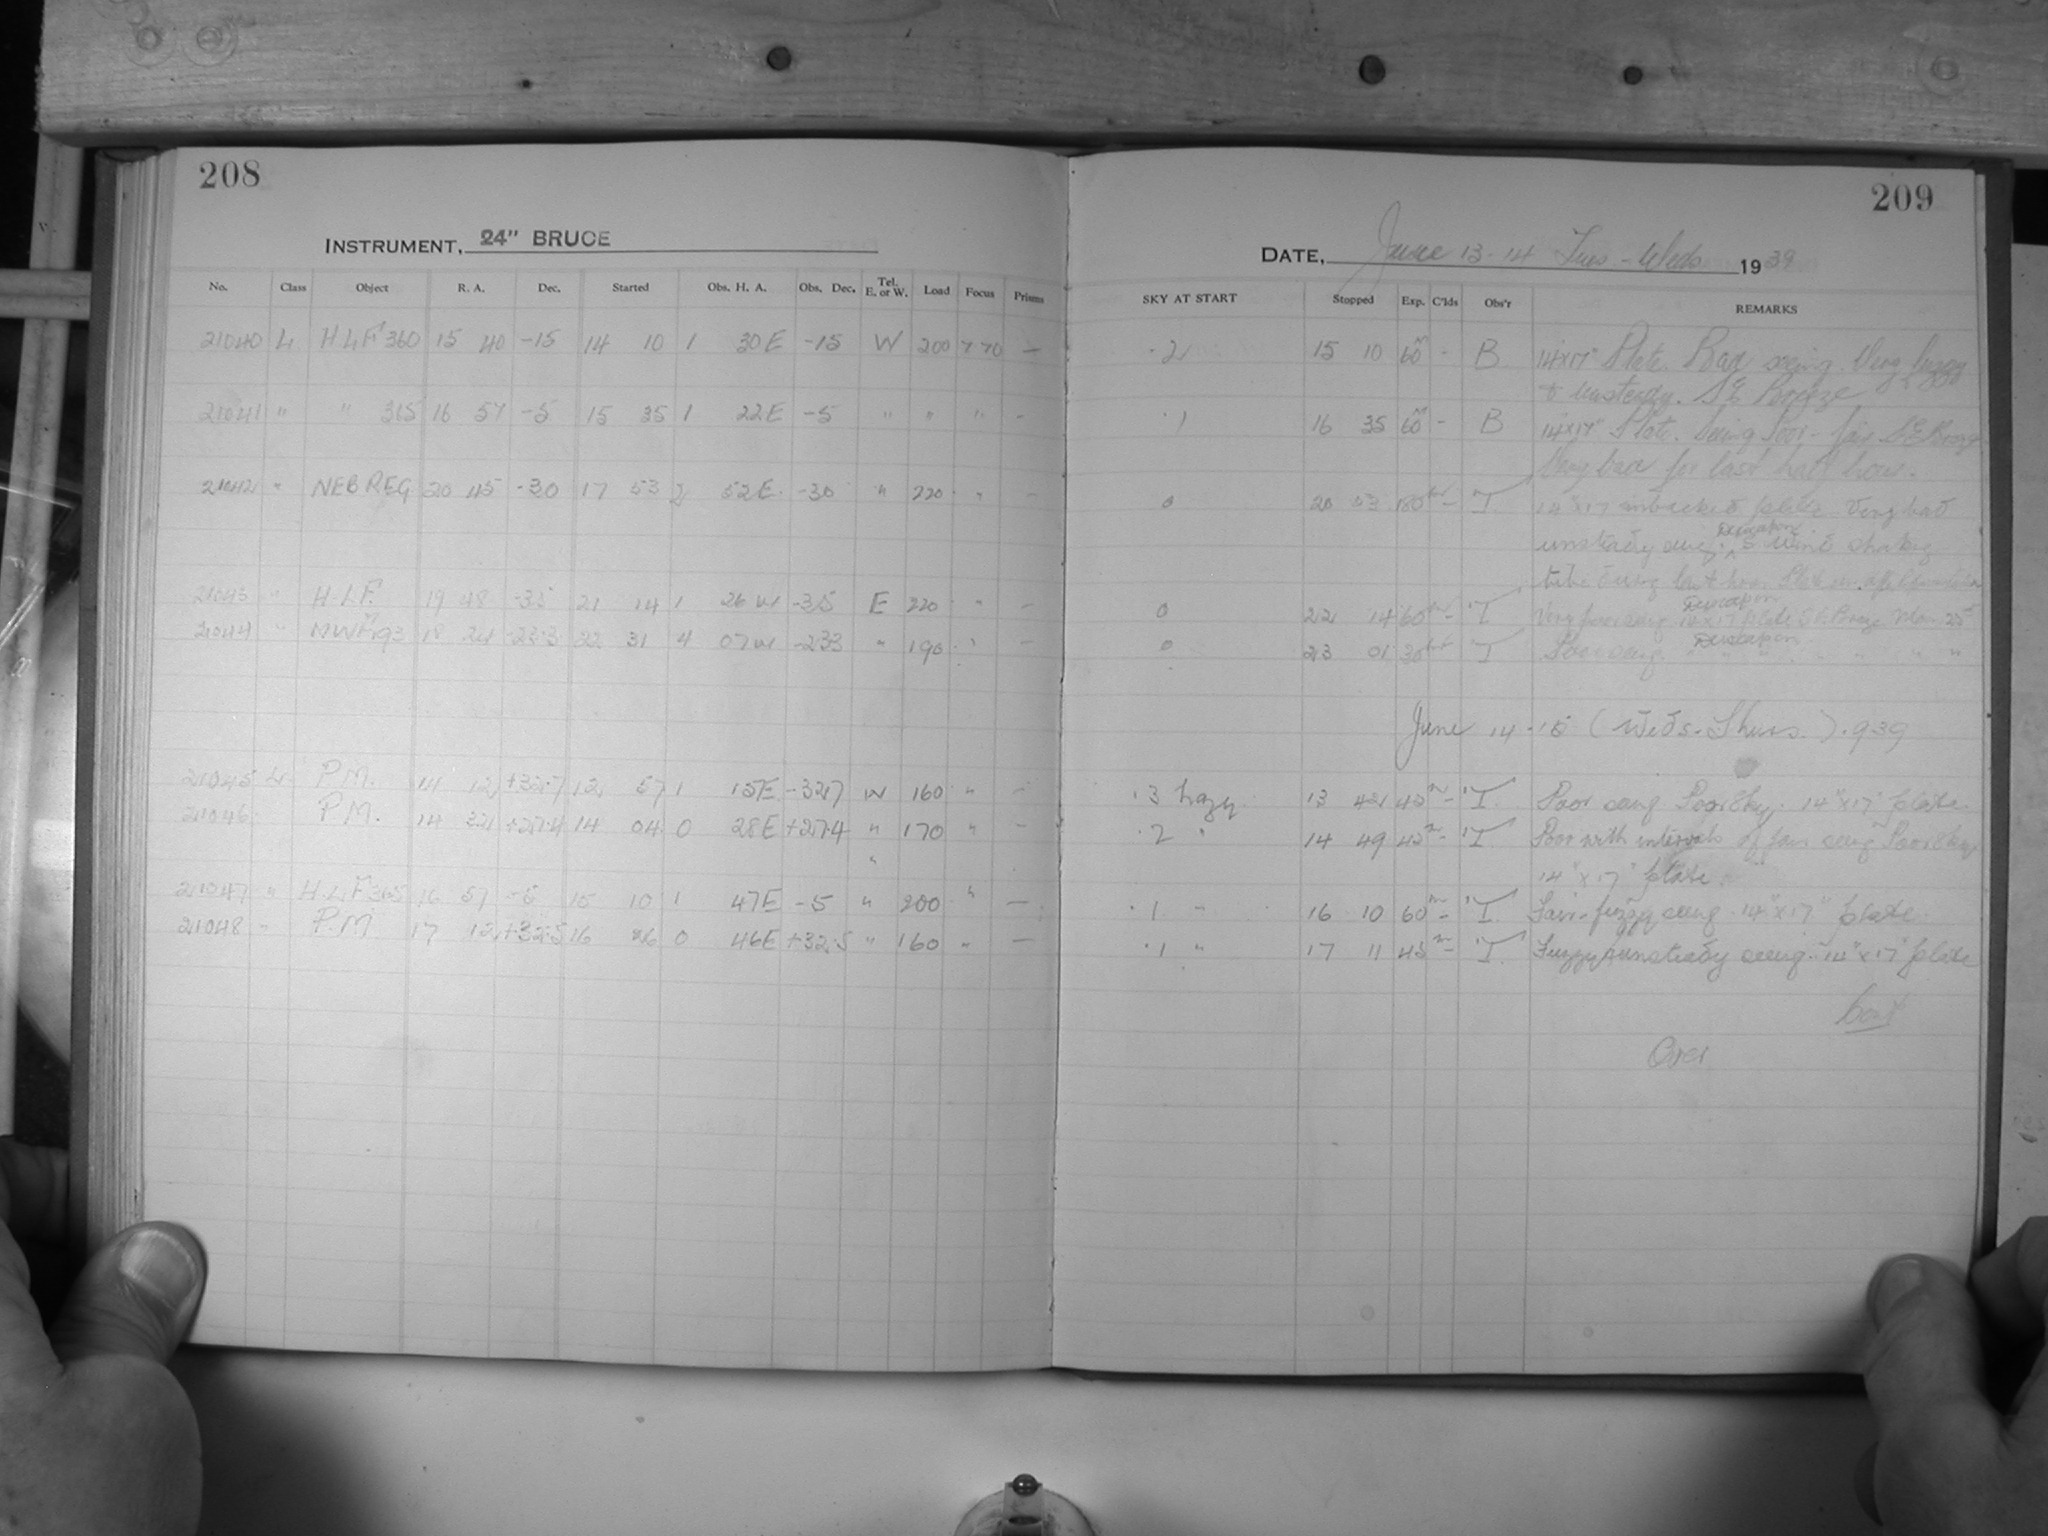 208
INSTRUMENT, 24" BRUCE
No. Class Object R. A. Dec. Started Obs. H. A. Obs. Dec. Tel. E. or W. Load Focus Prisms
21040 L H.L.F. 360 15 40 -15 14 10 1 30E -15 W 200 7.70 —
21041 " " 365 16 57 -5 15 35 1 22E -5 " " " -
21042 " NEB REG 20 45 -30 17 53 2 52E -30 " 220 " -
21043 " H.L.F. 19 48 -35 21 14 1 26W -35 E 220 " -
21044 " MWF 193 18 24 -23.3 22 31 4 07W -233 " 190 " -
21045 L P.M. 14 12 +32.7 12 57 1 15E -327 W 160 " -
21046 P.M. 14 32 +27.4 14 04 0 28E +27.4 " 170 " -
"
21047 " H.L.F 365 16 57 -5 15 10 1 47E -5 " 200 " —
21048 - P.M 17 12 +32.5 16 26 0 46E +32.5 " 160 " —
209
DATE, June 13-14 Tues-Weds 1939
SKY AT START Stopped Exp. C'lds Obs'r REMARKS
.2 15 10 60m - B 14"x17" Plate. Bad seeing. Very fuzzy
& unsteady. SE Breeze
.1 16 35 60m - B 14"x17" Plate. Seeing poor - fair SE Breeze
Very bad for last half hour.
0 20 53 180m - T 14"x17" unbacked plate Very bad
unsteady seeing. S Wind shaking
tube during last hour
0 22 14 60m - T Very poor seeing 14"x17" plate S.E. Breeze
0 23 01 30m - T Poor seeing " " " " " "
June 14-15 (Weds-Thurs.) 1939
.3 hazy 13 42 45m - T Poor seeing Poor sky. 14"x17" plate
.2 " 14 49 45m - T Poor with intervals of fair seeing Poor sky
14"x17" plate.
.1 " 16 10 60m - T Fair-fuzzy seeing 14"x17" plate
.1 " 17 11 45m - T Fuzzy & unsteady seeing. 14"x17" plate
Over